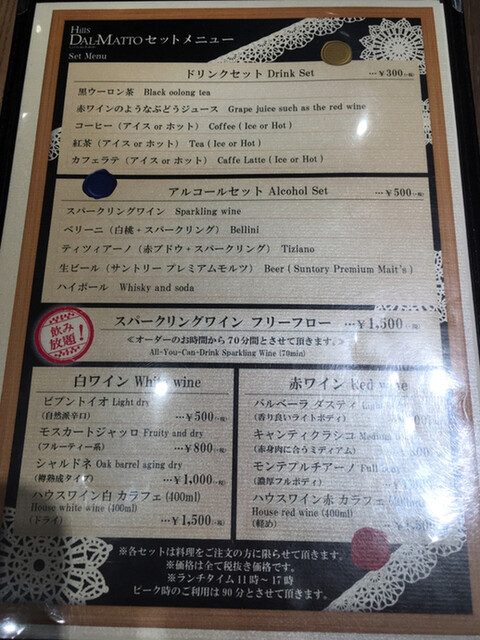 Hills
DAL-MATTO セットメニュー
Set Menu
ドリンクセット Drink Set …¥300(+税)
黒ウーロン茶 Black oolong tea
赤ワインのようなぶどうジュース Grape juice such as the red wine
コーヒー（アイス or ホット） Coffee ( Ice or Hot )
紅茶（アイス or ホット） Tea ( Ice or Hot )
カフェラテ（アイス or ホット） Caffe Latte ( Ice or Hot )
アルコールセット Alcohol Set …¥500(+税)
スパークリングワイン Sparkling wine
ベリーニ（白桃+スパークリング） Bellini
ティツィアーノ（赤ブドウ+スパークリング） Tiziano
生ビール（サントリー プレミアムモルツ） Beer ( Suntory Premium Malt's )
ハイボール Whisky and soda
飲み
放題!
スパークリングワイン フリーフロー …¥1,500(+税)
≪オーダーのお時間から70分間とさせて頂きます。≫
All-You-Can-Drink Sparkling Wine (70min)
白ワイン White wine
ビアントイオ Light dry
（自然派辛口） …¥500(+税)
モスカートジャッロ Fruity and dry
（フルーティー系） …¥800(+税)
シャルドネ Oak barrel aging dry
（樽熟成タイプ） …¥1,000(+税)
ハウスワイン白 カラフェ (400ml)
House white wine (400ml)
（ドライ） …¥1,500(+税)
赤ワイン Red wine
バルベーラ ダスティ
（香り良いライトボディ）
キャンティクラシコ Medium
（赤身肉に合うミディアム）
モンテプルチアーノ Full
（濃厚フルボディ）
ハウスワイン赤 カラフェ
House red wine (400ml)
（軽め）
※各セットは料理をご注文の方に限らせて頂きます。
※価格は全て税抜き価格です。
※ランチタイム11時～17時
ピーク時のご利用は90分とさせて頂きます。